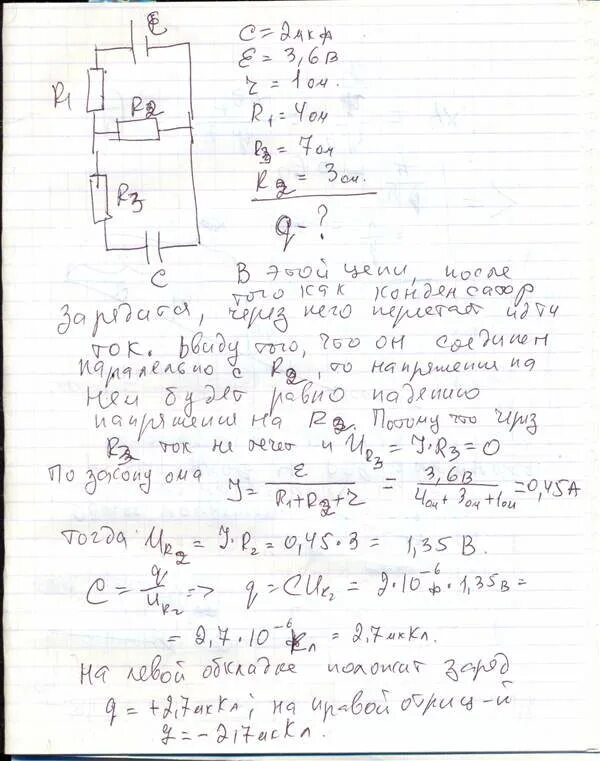 ℰ
C = 2мкф
ℰ = 3,6 В
r = 1 ом.
R1
R2
R1 = 4 ом
R3 = 7 ом
R2 = 3 ом.
R3
q - ?
C
В этой цепи, после
того как конденсатор
зарядится, через него перестает идти
ток. Ввиду того, что он соединен
паралельно с R2, то напряжение на
нем будет равно падению
напряжения на R2. Потому что через
R3 ток не течет и UR3 = J·R3 = 0
По закону ома J = ℰ/(R1+R2+r) = 3,6 В/(4ом + 3ом + 1ом) = 0,45 А
тогда UR2 = J·R2 = 0,45·3 = 1,35 В.
C = q/UR2 => q = CUR2 = 2·10⁻⁶ф·1,35 В =
= 2,7·10⁻⁶ Кл = 2,7 мкКл.
На левой обкладке положит заряд
q = +2,7 мкКл; на правой отриц-й
q = -2,7 мкКл.